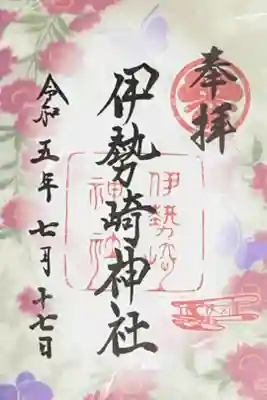 奉拝
伊勢崎神社
伊勢崎
神社
令和五年七月十七日